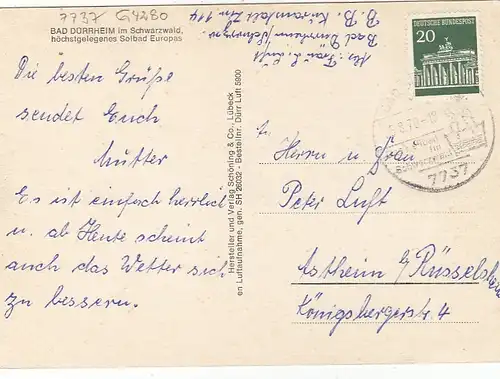 7737 G4280
BAD DÜRRHEIM im Schwarzwald,
höchstgelegenes Solbad Europas
Die besten Grüße
sendet Euch
Mutter
Es ist einfach herrlich
u. ab Heute scheint
auch das Wetter sich
zu bessern.
Hersteller und Verlag Schöning & Co., Lübeck
en Luftaufnahme, gen. SH 29032 - Bestellnr. Dürr Luft 5900
Abs.: Frau L. Luft
Bad Dürrheim/Schwarzw.
B. B. Kuranstalt Zi. 114
DEUTSCHE BUNDESPOST
20
7737
Herrn u. Frau
Peter Luft
Astheim b/ Rüsselsheim
Königsbergerstr. 4